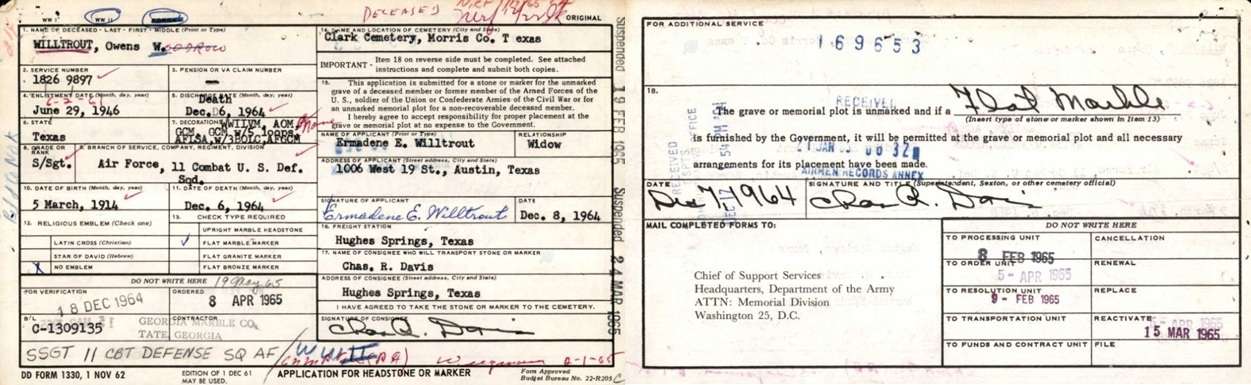 DECEASED
ORIGINAL
WW I
WW II
KOREAN
1. NAME OF DECEASED - LAST - FIRST - MIDDLE (Print or Type)
WILLTROUT, Owens W.
2. SERVICE NUMBER
1826 9897
3. PENSION OR VA CLAIM NUMBER
-
4. ENLISTMENT DATE (Month, day, year)
6-2-61
June 29, 1946
5. DISCHARGE DATE (Month, day, year)
Death
Dec. 6, 1964
6. STATE
Texas
7. DECORATIONS
WWIIVM, AOM,
GCM, GCM w/5 loops,
AFLSA, w/3BOLC, AFGCM
8. GRADE OR RANK
S/Sgt.
9. BRANCH OF SERVICE, COMPANY, REGIMENT, DIVISION
Air Force, 11 Combat U. S. Def.
Sqd.
10. DATE OF BIRTH (Month, day, year)
5 March, 1914
11. DATE OF DEATH (Month, day, year)
Dec. 6, 1964
12. RELIGIOUS EMBLEM (Check one)
LATIN CROSS (Christian)
STAR OF DAVID (Hebrew)
X NO EMBLEM
13. CHECK TYPE REQUIRED
UPRIGHT MARBLE HEADSTONE
✓ FLAT MARBLE MARKER
FLAT GRANITE MARKER
FLAT BRONZE MARKER
DO NOT WRITE HERE
19 May 65
FOR VERIFICATION
18 DEC 1964
ORDERED
8 APR 1965
B/L
C-1309135
CONTRACTOR
GEORGIA MARBLE CO.
TATE, GEORGIA
SSGT 11 CBT DEFENSE SQ AF
DD FORM 1330, 1 NOV 62
EDITION OF 1 DEC 61
MAY BE USED.
APPLICATION FOR HEADSTONE OR MARKER
Form Approved
Budget Bureau No. 22-R205
14. NAME AND LOCATION OF CEMETERY (City and State)
Clark Cemetery, Morris Co. T exas
IMPORTANT - Item 18 on reverse side must be completed. See attached
instructions and complete and submit both copies.
15. This application is submitted for a stone or marker for the unmarked
grave of a deceased member or former member of the Armed Forces of the
U. S., soldier of the Union or Confederate Armies of the Civil War or for
an unmarked memorial plot for a non-recoverable deceased member.
I hereby agree to accept responsibility for proper placement at the
grave or memorial plot at no expense to the Government.
NAME OF APPLICANT (Print or Type)
Ermadene E. Willtrout
RELATIONSHIP
Widow
ADDRESS OF APPLICANT (Street address, City and State)
1006 West 19 St., Austin, Texas
SIGNATURE OF APPLICANT
Ermadene E. Willtrout
DATE
Dec. 8, 1964
16. FREIGHT STATION
Hughes Springs, Texas
17. NAME OF CONSIGNEE WHO WILL TRANSPORT STONE OR MARKER
Chas. R. Davis
ADDRESS OF CONSIGNEE (Street address, City and State)
Hughes Springs, Texas
I HAVE AGREED TO TAKE THE STONE OR MARKER TO THE CEMETERY.
SIGNATURE OF CONSIGNEE
Chas R. Davis
Suspended 19 FEB 1965
Suspended 24 MAR 1965
FOR ADDITIONAL SERVICE
169653
18.
RECEIVED
The grave or memorial plot is unmarked and if a Flat Marble
(Insert type of stone or marker shown in Item 13)
is furnished by the Government, it will be permitted at the grave or memorial plot and all necessary
arrangements for its placement have been made.
AIRMEN RECORDS ANNEX
DATE
Dec 7, 1964
SIGNATURE AND TITLE (Superintendent, Sexton, or other cemetery official)
Chas R. Davis
MAIL COMPLETED FORMS TO:
Chief of Support Services
Headquarters, Department of the Army
ATTN: Memorial Division
Washington 25, D.C.
DO NOT WRITE HERE
TO PROCESSING UNIT
8 FEB 1965
CANCELLATION
TO ORDER UNIT
5 - APR 1965
RENEWAL
TO RESOLUTION UNIT
9 - FEB 1965
REPLACE
TO TRANSPORTATION UNIT
REACTIVATE
15 MAR 1965
TO FUNDS AND CONTRACT UNIT
FILE